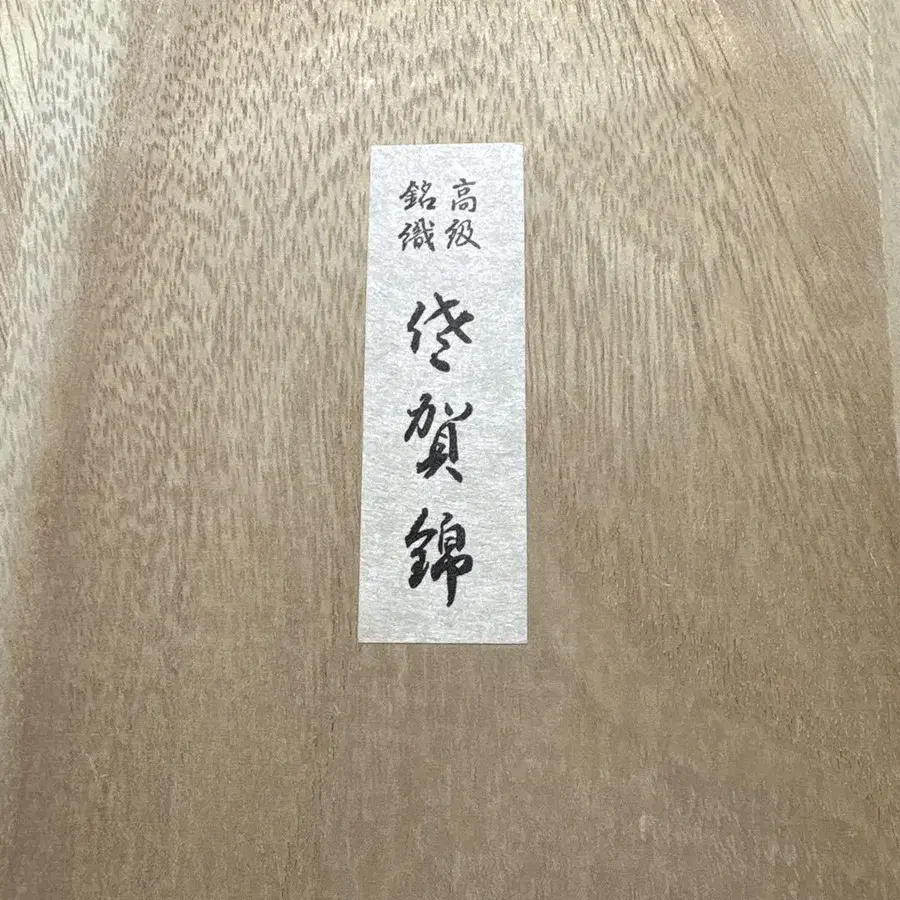 高級
銘織
佐賀錦